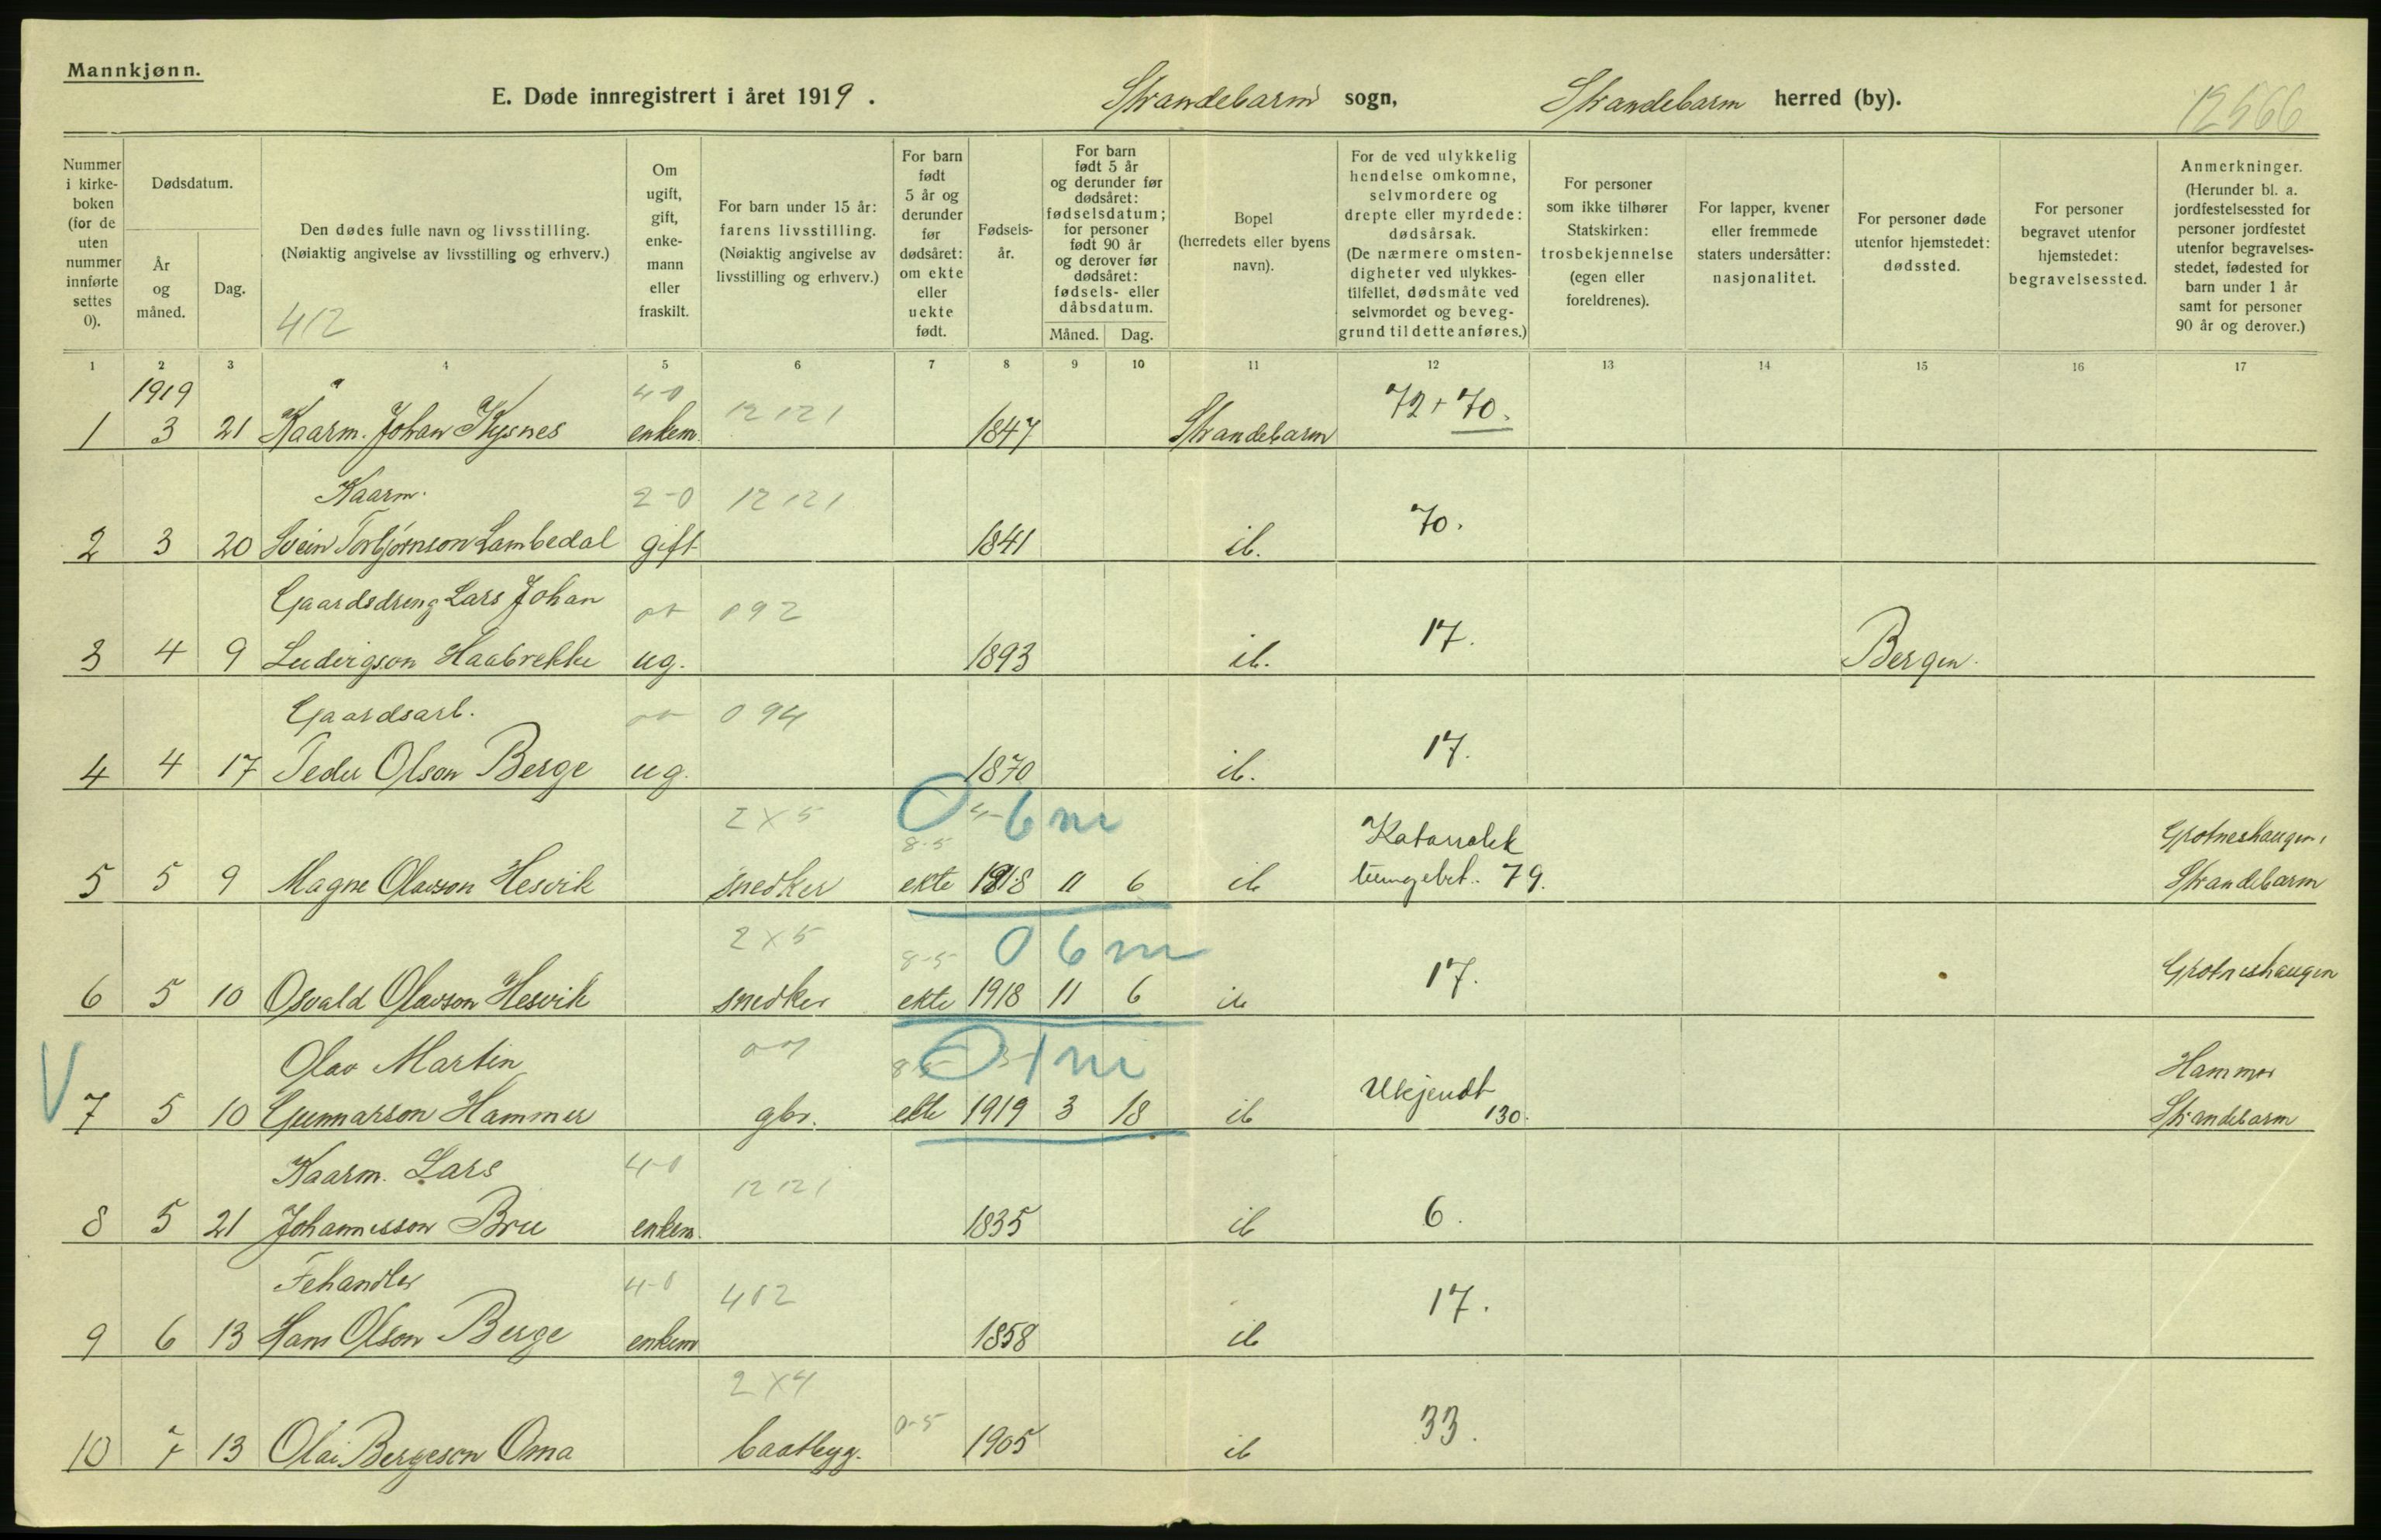 Mannkjønn.
E. Døde innregistrert i året 1919. Strandebarm sogn, Strandebarm herred (by). 12566
Nummer i kirkeboken (for de uten nummer innførte settes 0).
Dødsdatum.
År og måned.
Dag.
Den dødes fulle navn og livsstilling.
(Nøiaktig angivelse av livsstilling og erhverv.)
412
Om ugift, gift, enkemann eller fraskilt.
For barn under 15 år: farens livsstilling.
(Nøiaktig angivelse av livsstilling og erhverv.)
For barn født 5 år og derunder før dødsåret: om ekte eller uekte født.
Fødselsår.
For barn født 5 år og derunder før dødsåret: fødselsdatum; for personer født 90 år og derover før dødsåret: fødsels- eller dåbsdatum.
Måned. Dag.
Bopel (herredets eller byens navn).
For de ved ulykkelig hendelse omkomne, selvmordere og drepte eller myrdede: dødsårsak.
(De nærmere omstendigheter ved ulykkestilfellet, dødsmåte ved selvmordet og beveggrund til dette anføres.)
For personer som ikke tilhører Statskirken: trosbekjennelse (egen eller foreldrenes).
For lapper, kvener eller fremmede staters undersåtter: nasjonalitet.
For personer døde utenfor hjemstedet: dødssted.
For personer begravet utenfor hjemstedet: begravelsessted.
Anmerkninger.
(Herunder bl. a. jordfestelsessted for personer jordfestet utenfor begravelsesstedet, fødested for barn under 1 år samt for personer 90 år og derover.)
1 2 3 4 5 6 7 8 9 10 11 12 13 14 15 16 17
1919 4-0 12121 72+70.
1 3 21 Kaarm. Johan Kysnes enkem. 1847 Strandebarm
Kaarm. 2-0 12121 70.
2 3 20 Svein Torbjørnson Lambedal gift 1841 ib.
Gaardsdreng Lars Johan 092 17.
3 4 9 Ludvigson Haabrekke ug. 1893 ib. Bergen.
Gaardsarb. 094 17.
4 4 17 Peder Olson Berge ug. 1870 ib.
2x5 8-5 0 6m Katarralsk Grotneshaugen,
5 5 9 Magne Olavson Hesvik snedker ekte 1918 11 6 ib lungebet. 79. Strandebarm
2x5 8-5 0 6m 17. Grotneshaugen
6 5 10 Osvald Olavson Hesvik snedker ekte 1918 11 6 ib
V Olav Martin 8-5 0 1m Ukjendt Hammer
7 5 10 Gunnarson Hammer gbr. ekte 1919 3 18 ib 130. Strandebarm
Kaarm. Lars 4-0 12121 6.
8 5 21 Johannesson Bru enkem. 1835 ib
Fehandler 4-0 402 17.
9 6 13 Hans Olson Berge enkem 1858 ib
2x4 0-5 33.
10 7 13 Olai Bergeson Oma baatbygg. 1905 ib